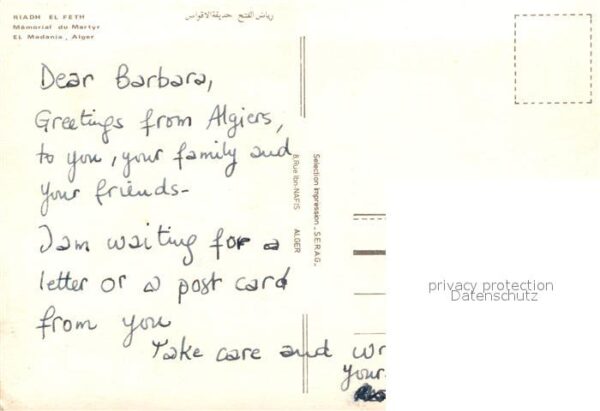 RIADH EL FETH
Mémorial du Martyr
EL Madania, Alger
رياض الفتح حديقة الاقواس
Dear Barbara,
Greetings from Algiers,
to you, your family and
your friends-
I am waiting for a
letter or a post card
from you
Take care and wr
your
Selection Impression. S.E.R.A.G.
8.Rue Ibn-NAFIS ALGER
privacy protection
Datenschutz